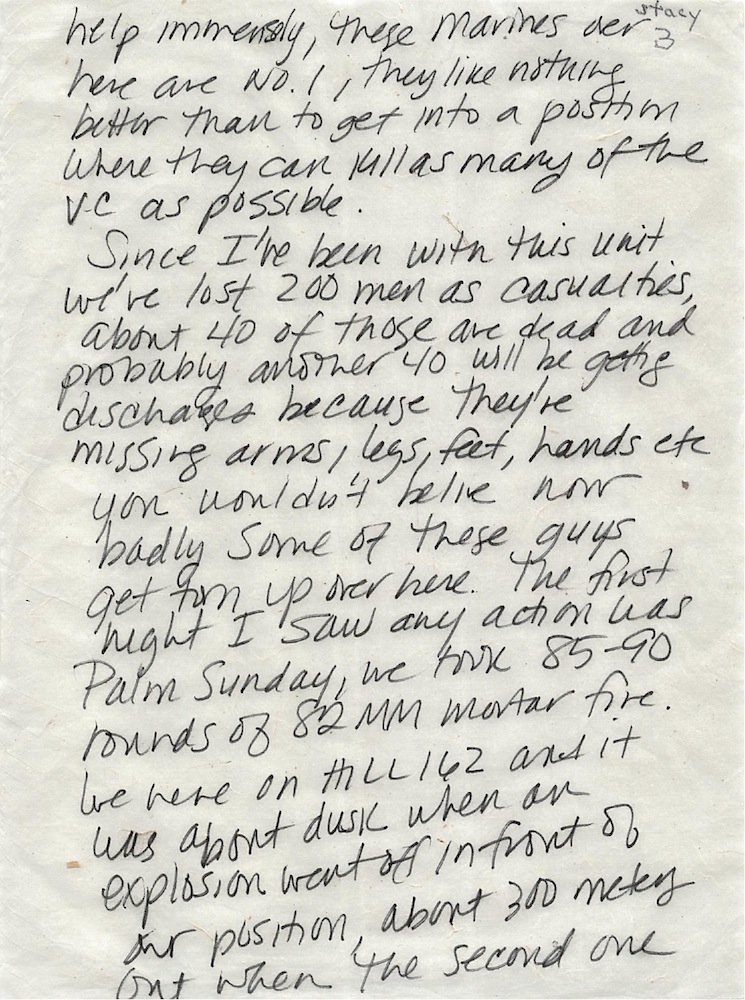 stacy
3
help immensly, these Marines over
here are No. 1, they like nothing
better than to get into a position
where they can kill as many of the
VC as possible.
Since I've been with this unit
we've lost 200 men as casualties,
about 40 of those are dead and
probably another 40 will be getting
discharges because they're
missing arms, legs, feet, hands etc
you wouldn't belive how
badly some of these guys
get torn up over here. The first
night I saw any action was
Palm Sunday, we took 85-90
rounds of 82 MM mortar fire.
We were on HILL 162 and it
was about dusk when an
explosion went off in front of
our position, about 300 meters
out when the second one